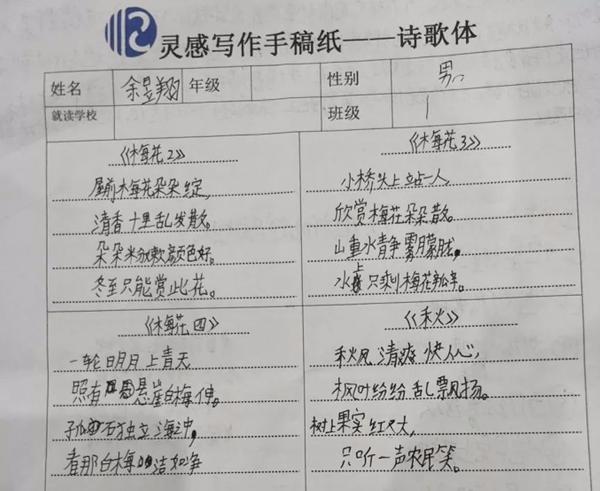 灵感写作手稿纸——诗歌体
姓名 余昱翔 年级 性别 男
就读学校 班级 1
《梅花2》
屋前梅花朵朵绽,
清香十里乱发散。
朵朵米嫩颜色好。
冬至只能赏此花。
《梅花3》
小桥头上立占一人,
欣赏梅花朵朵散。
山重水青争雾朦胧,
水上只剩梅花
《梅花四》
一轮日明月上青天
照有悬崖白梅伸。
孤石独立海冲,
看那白梅洁如争
《秋》
秋风清爽快人心,
枫叶纷纷乱飘扬。
树上果实红又大,
只听一声农民笑。